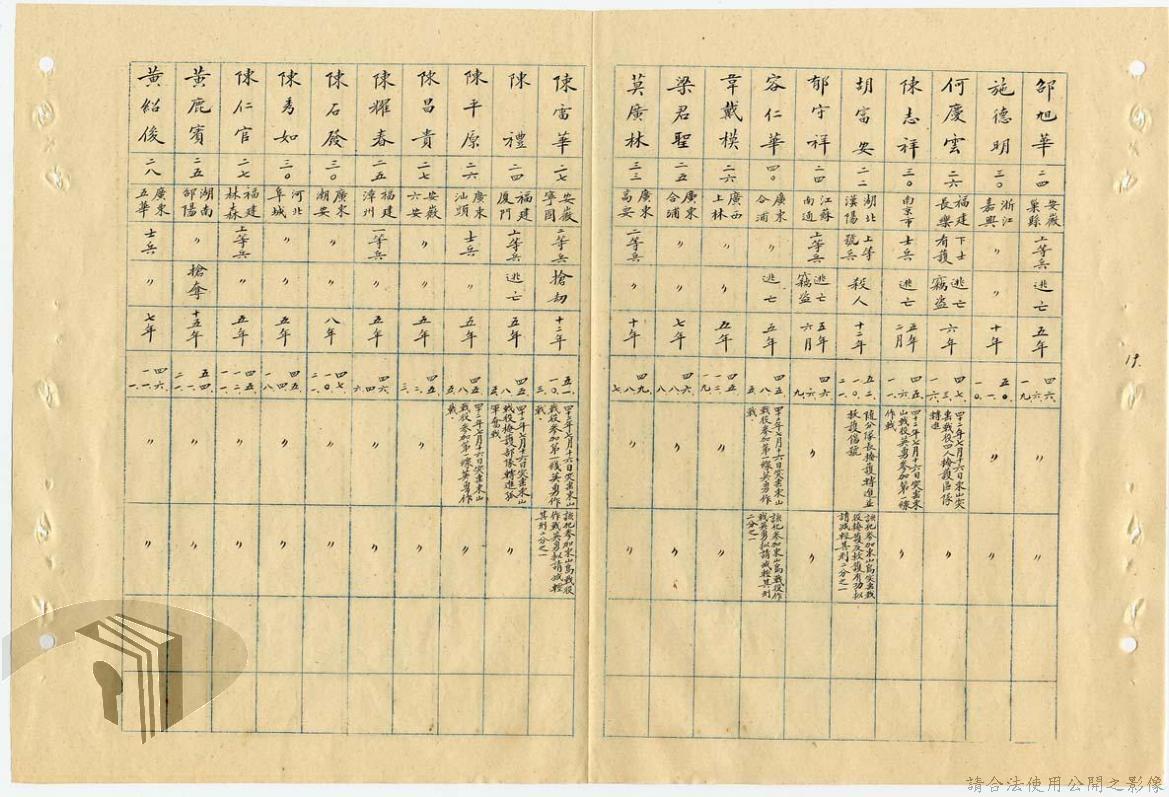 19.
邵旭華 二四 安徽巢縣 上等兵 逃亡 五年 四六、六、一九、 〃 〃
施德明 三〇 浙江嘉興 〃 〃 十年 五一、一〇、 〃 〃
何慶雲 二六 福建長樂 下士有護 逃亡竊盜 六年 四七、三、一六、 四十二年七月十六日東山突擊戰役四人掩護區隊轉進 〃
陳志祥 三〇 南京市 士兵 逃亡 五年二月 四五、六、一一、 四十二年七月十六日突擊東山戰役英勇參加第一線作戰 〃
胡富安 二二 湖北漢陽 上等號兵 殺人 十二年 五二、一〇、二一、 隨分隊長掩護轉進並救護傷號 該犯參加東山島突擊戰役掩護及救護有功擬請減輕其刑二分之一
郁守祥 二四 江蘇南通 上等兵 逃亡竊盜 五年六月 四六、六、九、 〃 〃
容仁華 四〇 廣東合浦 逃亡 五年 四五、八、五、 四十二年七月十六日突擊東山戰役參加第一線英勇作戰、 該犯參加東山島戰役作戰英勇擬請減輕其刑二分之一
韋戴模 二六 廣西上林 〃 〃 五年 四五、一二、九、 〃 〃
梁君聖 二五 廣東合浦 〃 〃 七年 四六、八、八、 〃 〃
莫廣林 三三 廣東高安 二等兵 〃 十年 四九、八、七、 〃 〃
陳雷華 二七 安徽寧國 二等兵 搶劫 十二年 五一、一〇、三、 四十二年七月十六日突擊東山戰役參加第一線英勇作戰、 該犯參加東山島戰役作戰英勇擬請減輕其刑二分之一
陳禮 二四 福建廈門 上等兵 逃亡 五年 四五、八、五、 四十二年七月十六日突擊東山戰役掩護部隊轉進孤軍奮戰 〃
陳平原 二六 廣東汕頭 士兵 〃 五年 四五、八、五、 四十二年七月十六日突擊東山戰役參加第一線英勇作戰、 〃
陳昌貴 二七 安徽六安 〃 〃 五年 四五、三、二、 〃 〃
陳耀春 二五 福建漳州 一等兵 〃 五年 四六、四、六、 〃 〃
陳石發 三〇 廣東潮安 〃 〃 八年 四七、一〇、二一、 〃 〃
陳秀如 三〇 河北阜城 〃 〃 五年 四五、四、一八、 〃 〃
陳仁官 二七 福建林森 上等兵 〃 五年 四五、一二、一一、 〃 〃
黃鹿賓 二五 湖南邵陽 〃 搶奪 十五年 五四、一、二一、 〃 〃
黃紹俊 二八 廣東五華 士兵 〃 七年 四六、一一、一一、 〃 〃
請合法使用公開之影像